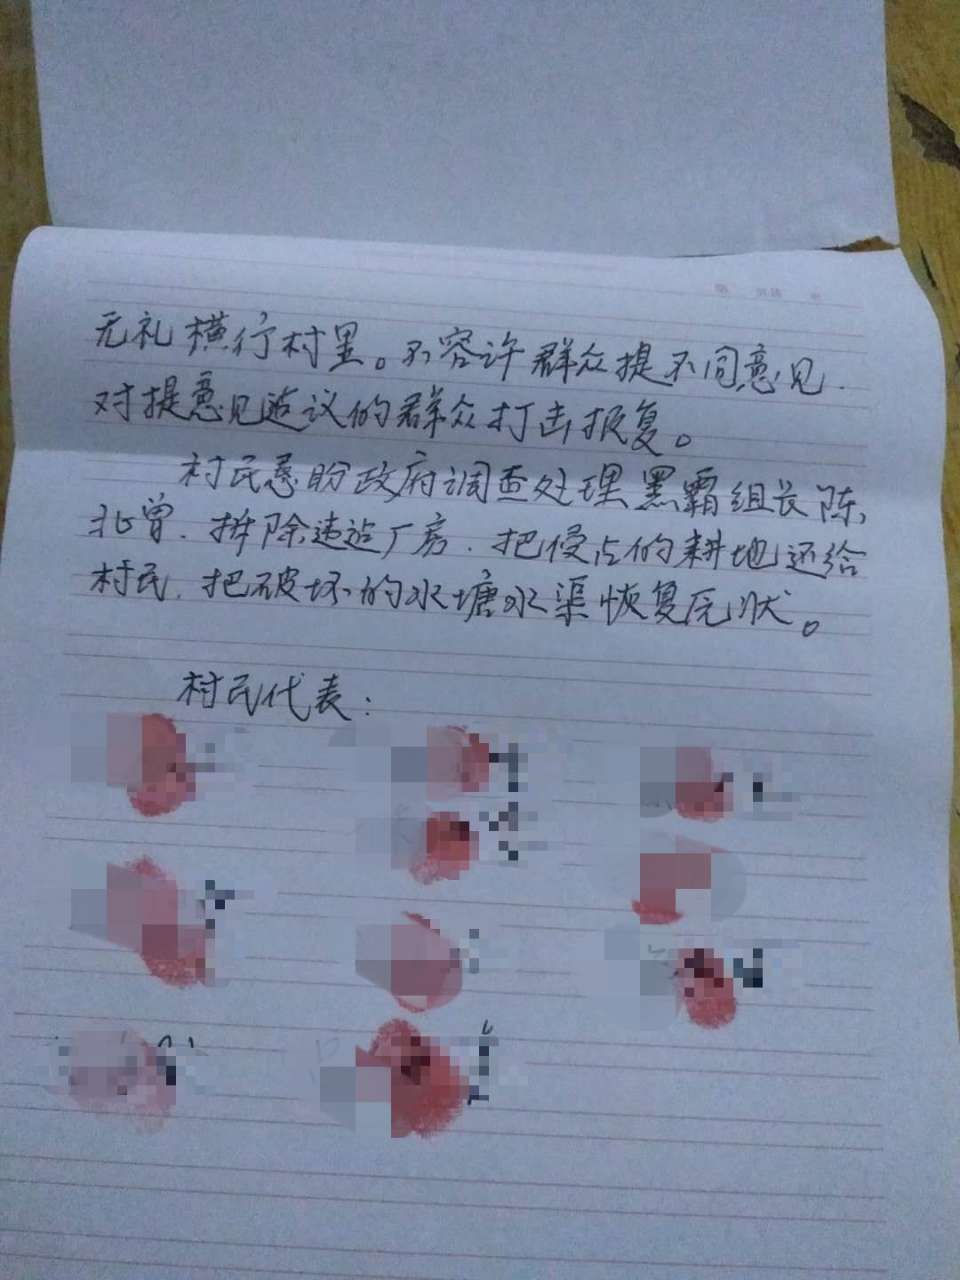 无礼横行村里。不容许群众提不同意见.
对提意见造议的群众打击报复。
村民恳盼政府调查处理黑霸组长陈
北曾.拆除违造厂房.把侵占的耕地还给
村民.把破坏的水塘水渠恢复原状。
村民代表: